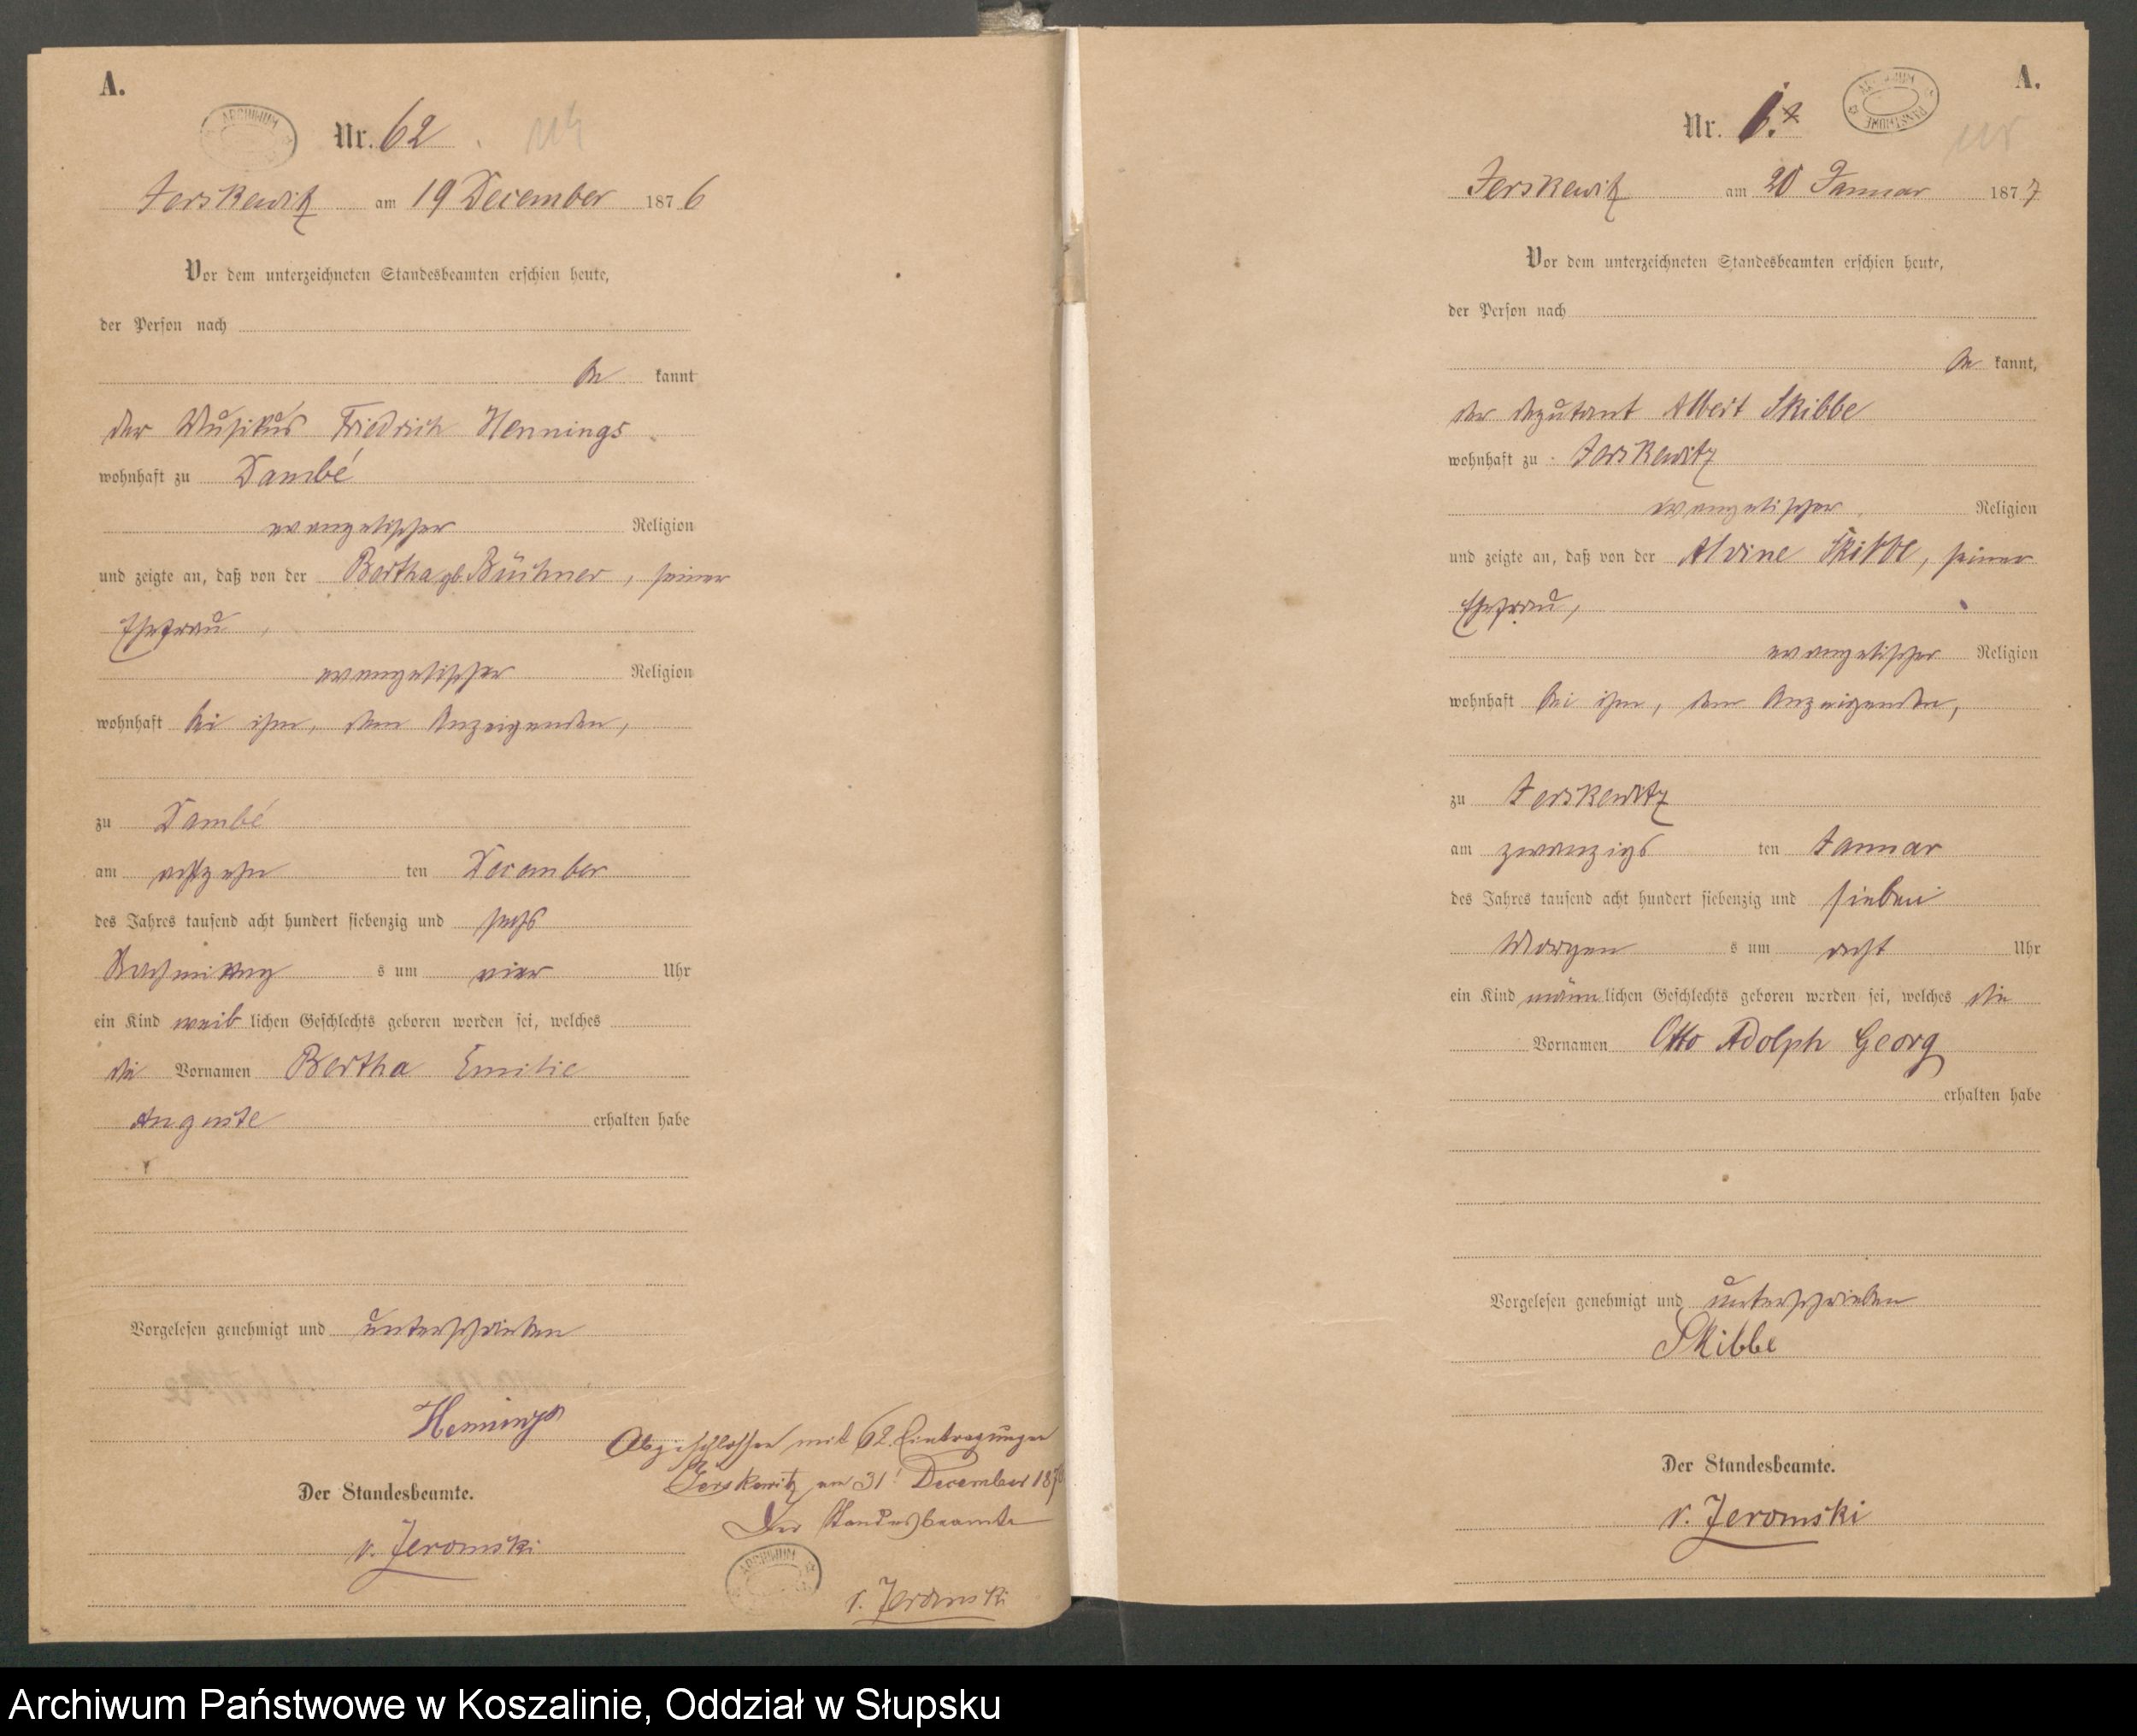 A.
ARCHIWUM
Nr. 62
Jerskewitz am 19 December 1876
Vor dem unterzeichneten Standesbeamten erschien heute,
der Person nach
be kannt
der Musikus Friedrich Hennings
wohnhaft zu Dambé
evangelischer Religion
und zeigte an, daß von der Bertha gb. Büchner, seiner
Ehefrau,
evangelischer Religion
wohnhaft bei ihm, dem Anzeigenden,
zu Dambé
am achtzehn ten December
des Jahres tausend acht hundert siebenzig und sechs
Nachmittag s um vier Uhr
ein Kind weib lichen Geschlechts geboren worden sei, welches
die Vornamen Bertha Emilie
Auguste erhalten habe
Vorgelesen genehmigt und unterschrieben
Hennings
Der Standesbeamte.
v. Jeromski
Abgeschlossen mit 62 Eintragungen
Jerskewitz am 31t December 187
Der Standesbeamte
ARCHIWUM
v. Jeromski
A.
ARCHIWUM PAŃSTWOWE
Nr. 1.
Jerskewitz am 20 Januar 1877
Vor dem unterzeichneten Standesbeamten erschien heute,
der Person nach
be kannt,
der Deputant Albert Skibbe
wohnhaft zu Jerskewitz
evangelischer Religion
und zeigte an, daß von der Alvine Skibbe, seiner
Ehefrau,
evangelischer Religion
wohnhaft bei ihm, dem Anzeigenden,
zu Jerskewitz
am zwanzigs ten Januar
des Jahres tausend acht hundert siebenzig und sieben
Morgen s um acht Uhr
ein Kind männ lichen Geschlechts geboren worden sei, welches die
Vornamen Otto Adolph Georg
erhalten habe
Vorgelesen genehmigt und unterschrieben
Skibbe
Der Standesbeamte.
v. Jeromski
Archiwum Państwowe w Koszalinie, Oddział w Słupsku